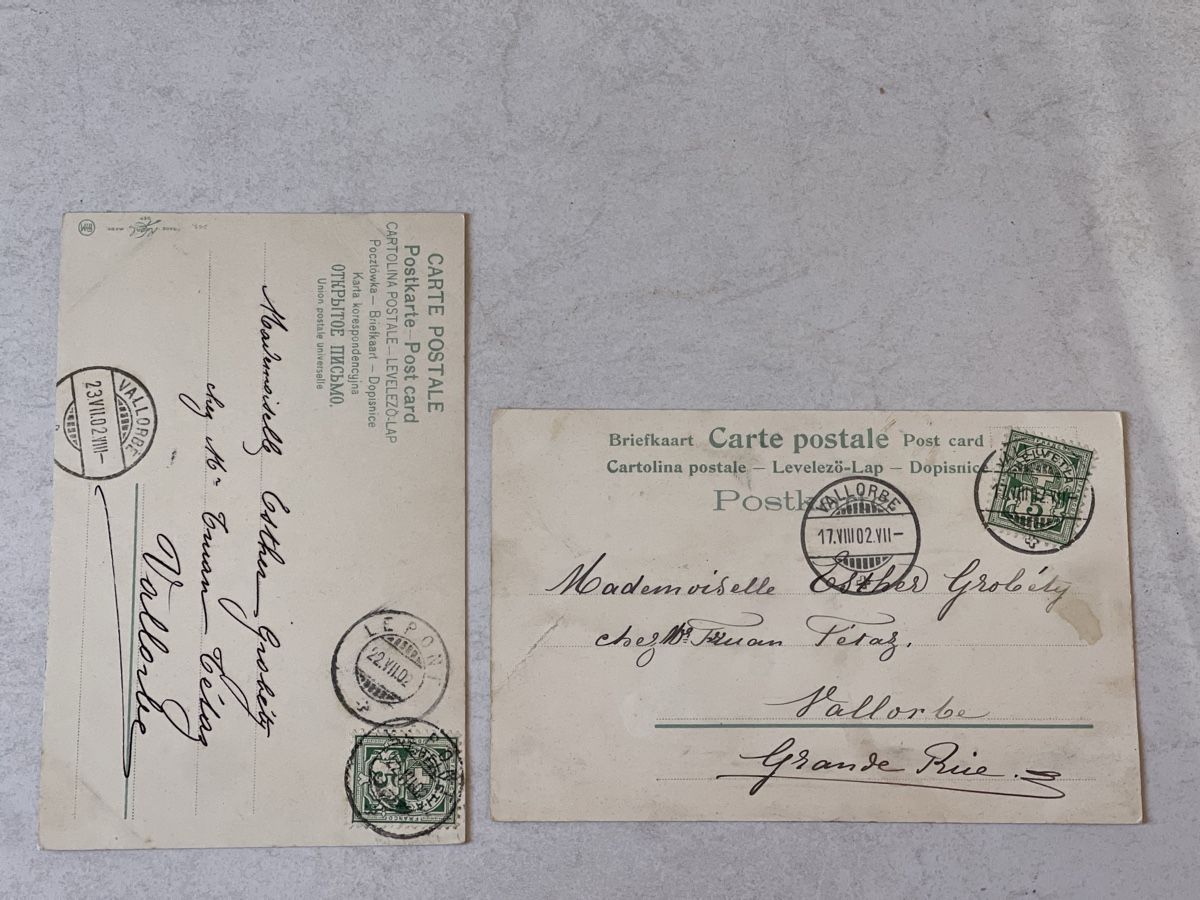 CARTE POSTALE
Postkarte - Post card
CARTOLINA POSTALE - LEVELEZÖ-LAP
Pocztówka - Briefkaart - Dopisnice
Karta korespondencyjna
ОТКРЫТОЕ ПИСЬМО.
Union postale universelle
Mademoiselle Esther Grobéty
chez Mr Truan Tétaz
Vallorbe
VALLORBE
23.VII.02.VIII-
LE PONT
22.VII.02
HELVETIA
5
FRANCO
Briefkaart Carte postale Post card
Cartolina postale - Levelező-Lap - Dopisnice
Postk
VALLORBE
17.VIII 02.VII-
HELVETIA
5
Mademoiselle Esther Grobéty
chez Mr Truan Tétaz.
Vallorbe
Grande Rue.